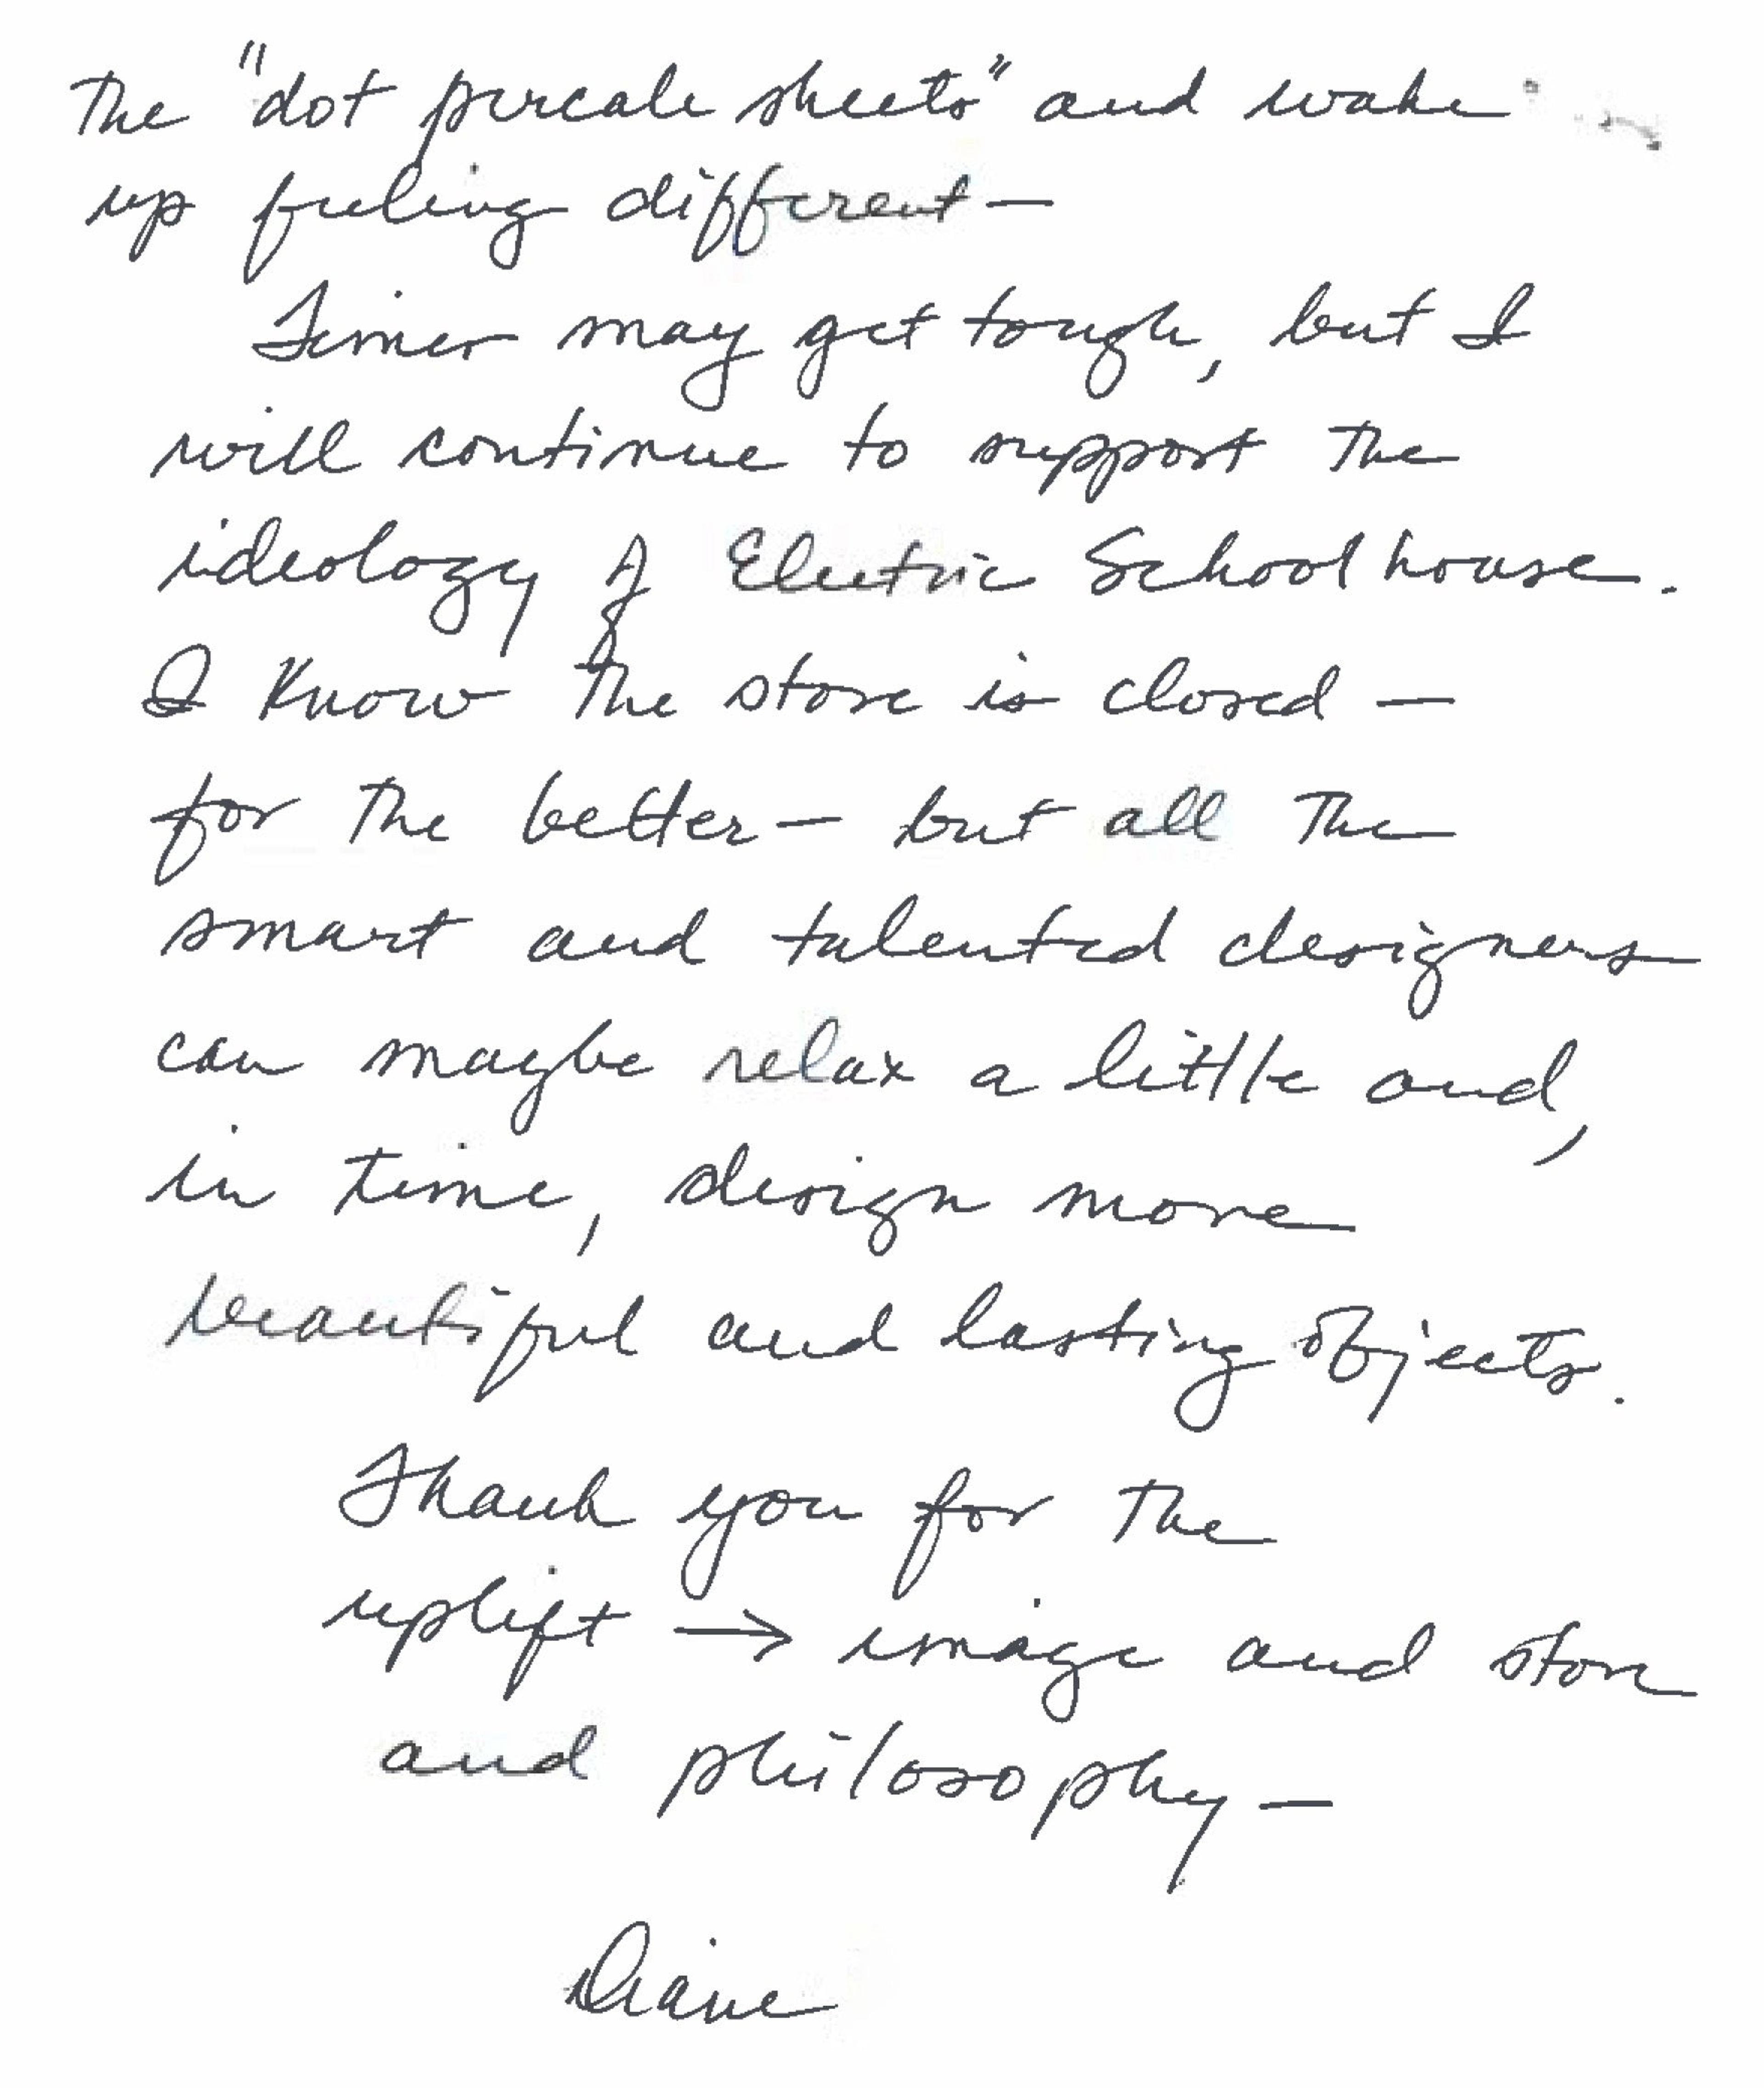 The "dot percale sheets" and wake
up feeling different —
Times may get tough, but I
will continue to support the
ideology of Electric Schoolhouse.
I know the store is closed —
for the better — but all the
smart and talented designers
can maybe relax a little and,
in time, design more
beautiful and lasting objects.
Thank you for the
uplift → image and store
and philosophy —
Diane